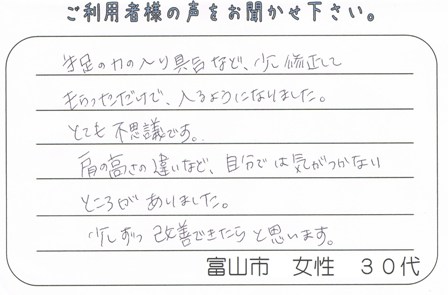 ご利用者様の声をお聞かせ下さい。
手足の力の入り具合など、少し修正して
もらっただけで、入るようになりました。
とても不思議です。
肩の高さの違いなど、自分では気がつかない
ところがありました。
少しずつ改善できたらと思います。
富山市 女性 30代